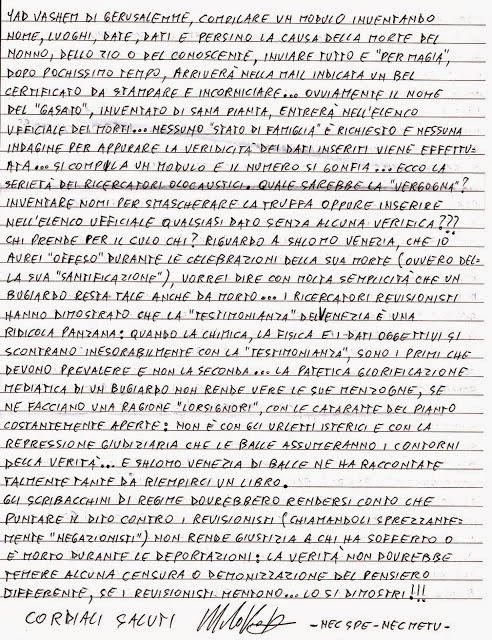 YAD VASHEM DI GERUSALEMME, COMPILARE UN MODULO INVENTANDO
NOME, LUOGHI, DATE, DATI E PERSINO LA CAUSA DELLA MORTE DEL
NONNO, DELLO ZIO O DEL CONOSCENTE, INVIARE TUTTO E "PER MAGIA",
DOPO POCHISSIMO TEMPO, ARRIVERÀ NELLA MAIL INDICATA UN BEL
CERTIFICATO DA STAMPARE E INCORNICIARE... OVVIAMENTE IL NOME
DEL "GASATO", INVENTATO DI SANA PIANTA, ENTRERÀ NELL'ELENCO
UFFICIALE DEI MORTI... NESSUNO "STATO DI FAMIGLIA" È RICHIESTO E NESSUNA
INDAGINE PER APPURARE LA VERIDICITÀ DEI DATI INSERITI VIENE EFFETTU=
ATA... SI COMPILA UN MODULO E IL NUMERO SI GONFIA... ECCO LA
SERIETÀ DEI RICERCATORI OLOCAUSTICI. QUALE SAREBBE LA "VERGOGNA"?
INVENTARE NOMI PER SMASCHERARE LA TRUFFA OPPURE INSERIRE
NELL'ELENCO UFFICIALE QUALSIASI DATO SENZA ALCUNA VERIFICA???
CHI PRENDE PER IL CULO CHI? RIGUARDO A SHLOMO VENEZIA, CHE IO
AUREI "OFFESO" DURANTE LE CELEBRAZIONI DELLA SUA MORTE (OVVERO DEL=
LA SUA "SANTIFICAZIONE"), VORREI DIRE CON MOLTA SEMPLICITÀ CHE UN
BUGIARDO RESTA TALE ANCHE DA MORTO... I RICERCATORI REVISIONISTI
HANNO DIMOSTRATO CHE LA "TESTIMONIANZA" DEL VENEZIA È UNA
RIDICOLA PANZANA: QUANDO LA CHIMICA, LA FISICA E I DATI OGGETTIVI SI
SCONTRANO INESORABILMENTE CON LA "TESTIMONIANZA", SONO I PRIMI CHE
DEVONO PREVALERE E NON LA SECONDA... LA PATETICA GLORIFICAZIONE
MEDIATICA DI UN BUGIARDO NON RENDE VERE LE SUE MENZOGNE, SE
NE FACCIANO UNA RAGIONE "LORSIGNORI", CON LE CATARATTE DEL PIANTO
COSTANTEMENTE APERTE: NON È CON GLI URLETTI ISTERICI E CON LA
REPRESSIONE GIUDIZIARIA CHE LE BALLE ASSUMERANNO I CONTORNI
DELLA VERITÀ... E SHLOMO VENEZIA DI BALLE NE HA RACCONTATE
TALMENTE TANTE DA RIEMPIRCI UN LIBRO.
GLI SCRIBACCHINI DI REGIME DOVREBBERO RENDERSI CONTO CHE
PUNTARE IL DITO CONTRO I REVISIONISTI (CHIAMANDOLI SPREZZANTE=
MENTE "NEGAZIONISTI") NON RENDE GIUSTIZIA A CHI HA SOFFERTO O
È MORTO DURANTE LE DEPORTAZIONI: LA VERITÀ NON DOVREBBE
TEMERE ALCUNA CENSURA O DEMONIZZAZIONE DEL PENSIERO
DIFFERENTE, SE I REVISIONISTI MENDONO... LO SI DIMOSTRI!!!
CORDIALI SALUTI -NEC SPE-NEC METU-